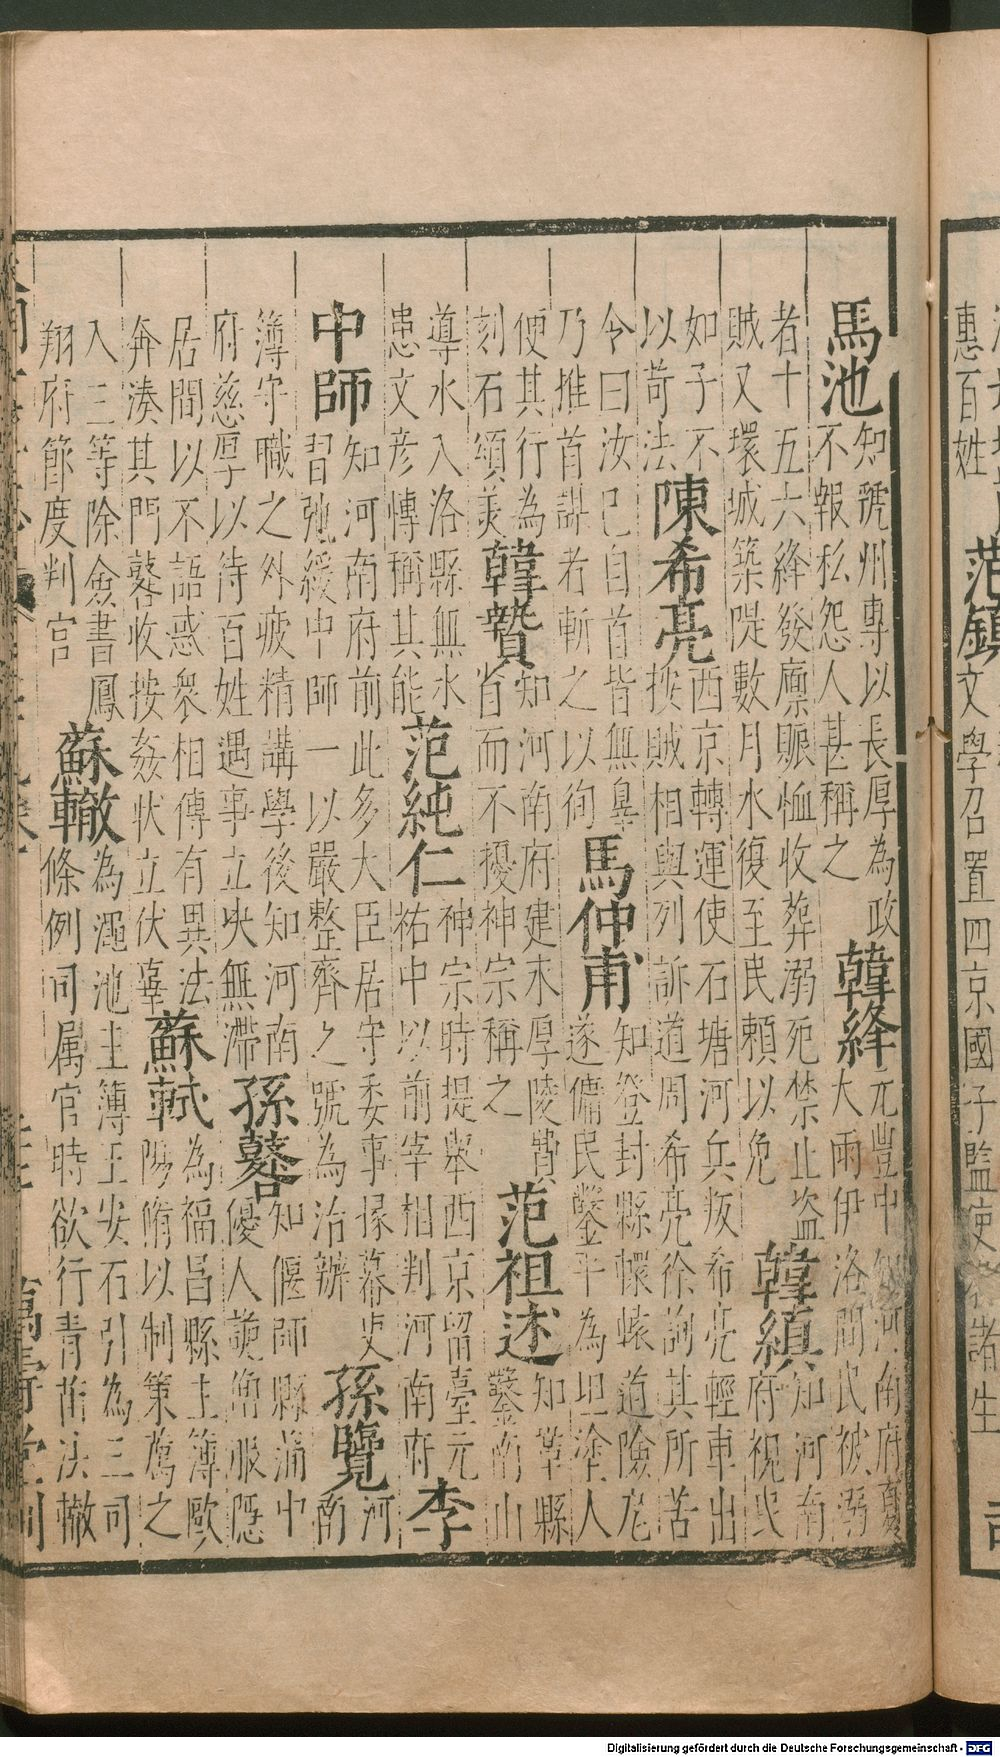 惠百姓
范鎮
文學召置四京國子監使
諸生
馬池
知號州專以長厚為政
不報私怨人甚稱之
韓絳
元豊中知河南府夏
大雨伊洛間民被溺
者十五六絳發廪賑恤收葬溺死禁止盜
賊又環城築隄數月水復至民賴以免
韓縝
知河南
府視民
如子不
以苛法
陳希亮
西京轉運使石塘河兵叛希亮輕車出
按賊相與列訴道周希亮徐詢其所苦
令曰汝已自首皆無辠
乃推首謀者斬之以徇
馬仲甫
知登封縣轘轅道險厄
遂傭民鑿平為坦塗人
便其行為
刻石頌美
韓贄
知河南府建永厚陵費
省而不擾神宗稱之
范祖述
知鞏縣
鑿南山
導水入洛縣無水
患文彦愽稱其能
范純仁
神宗時提舉西京留臺元
祐中以前宰相判河南府
李
中師
知河南府前此多大臣居守委事掾幕吏
習弛緩中師一以嚴整齊之號為治辦
孫覽
河
南
簿守職之外疲精講學後知河南
府慈厚以待百姓遇事立决無滯
孫
知偃師縣蒲中
優人詭僧服隱
居間以不語惑衆相傳有異法
奔湊其門收按姦狀立伏辜
蘇軾
為福昌縣主簿歐
陽脩以制策薦之
入三等除僉書鳳
翔府節度判官
蘇轍
為澠池主簿王安石引為三司
條例司属官時欲行青苗法轍
萬壽堂刊
Digitalisierung gefördert durch die Deutsche Forschungsgemeinschaft - DFG